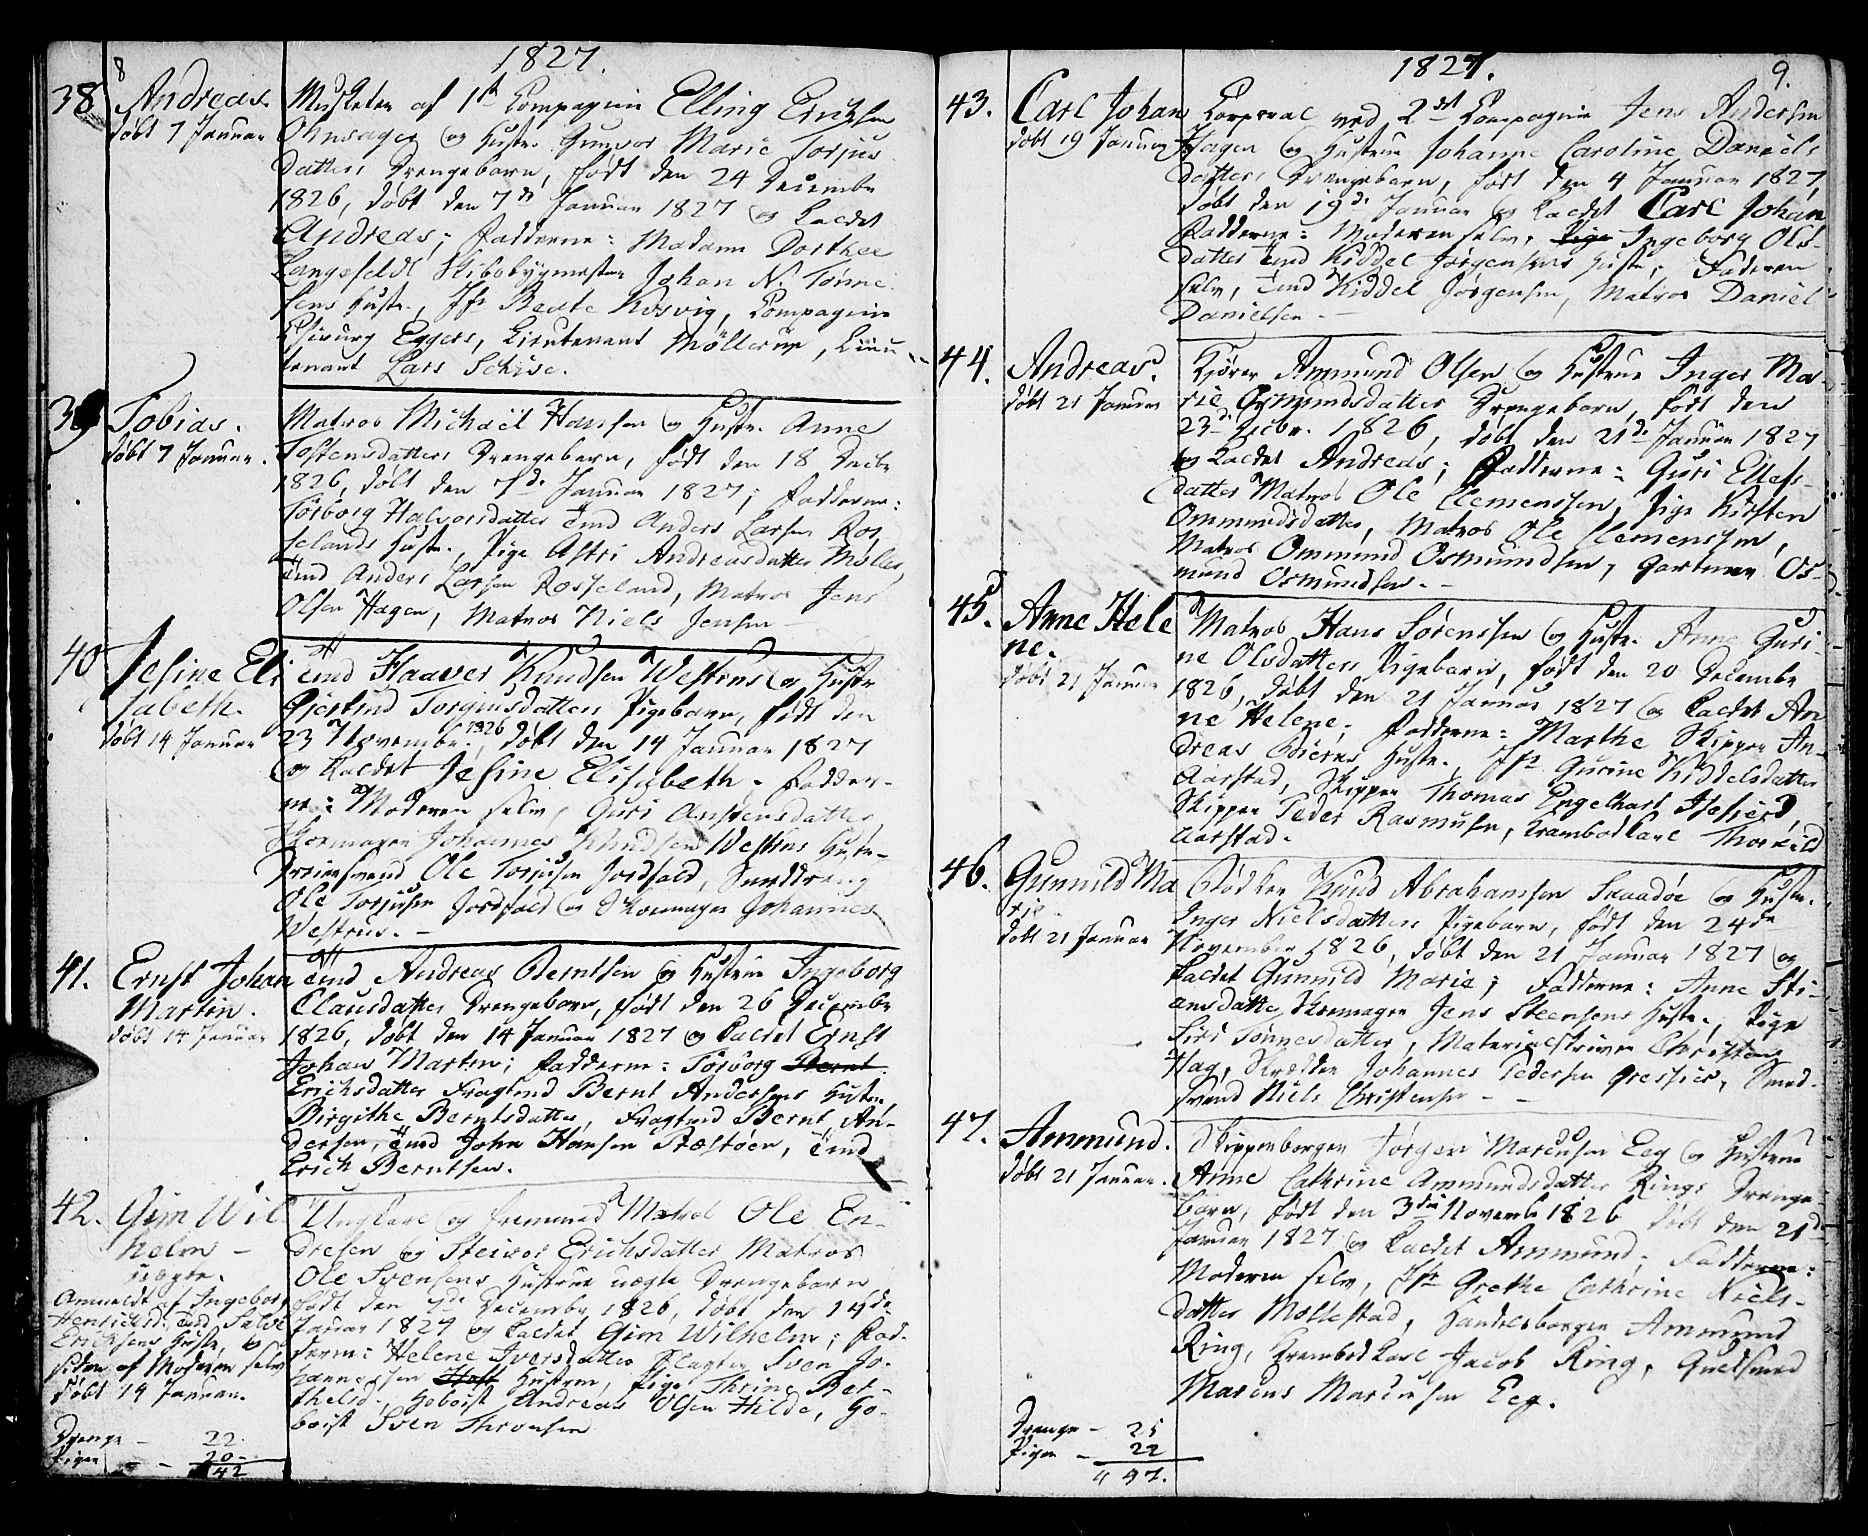 8
1827.
38. Andreas.
döbt 7 Januar
Musketer af 1ste Compagnie Elling Erichsen
Ohnsager og Hustr. Gunvor Marie Torjus
datters Drengebarn, født den 24 Decembr
1826, döbt den 7de Januar 1827 og kaldet
Andreas; Fadderne: Madame Dorthea
Langefeldt Skibsbÿgmester Johan N. Tønne
sens Hustr., Jfr Beate Kosvig, Compagnie
Chirurg Eggers, Lieutenant Möllerup, Lieu
tenant Lars Schive.
39 Tobias.
döbt 7 Januar.
Matros Michael Hansen og Hustr. Anne
Tostensdatters Drengebarn, født den 18 Decbr
1826, döbt den 7de Januar 1827; Fadderne:
Torborg Halvorsdatter Tmd Anders Larsen Ros
selands Hustr., Pige Astri Andreasdatter Møller,
Tmd Anders Larsen Rosseland, Matros Jens
Olsen Hagen, Matros Niels Jensen
40 Jesine Eli
sabeth.
döbt 14 Januar
Tmd Haaver Knudsen Westrus og Hustr
Gjertrud Torginsdatters Pigebarn, født den
23 Novembr. 1826, döbt den 14 Januar 1827
og kaldet Jesine Elisabeth. Fadder-
ne: Moderen selv, Guri Anstensdatter,
Skomager Johannes Knudsen Westrus Hustr-
Dreiersvend Ole Torjusen Jordfald, Smeddreng
Ole Torjusen Jordfald og Skomager Johannes
Westrus. -
41. Ernst Johan
Martin.
döbt 14 Januar
Tmd Andreas Berntsen og Hustrue Ingeborg
Clausdatters Drengebarn, født den 26 Decembr
1826, döbt den 14 Januar 1827 og kaldet Ernst
Johan Martin; Fadderne: Torborg Bernt
Erichsdatter Fragtmd Bernt Andersens Hustr.,
Birgithe Berntsdatter, Fragtmd Bernt An-
dersen, Tmd John Hansen Præstøen, Tmd
Erich Berntsen.
42. Gim Wil
helm -
uægte.
Anmeldt af Ingeborg
Henrichsd. Tmd Salve
Erichsens Hustr., og
siden af Moderen selv
döbt 14 Januar.
Ungkarl og fremmed Matros Ole En-
dresen og Steivor Erichsdatter Matros
Ole Svensens Hustrue uægte Drengebarn
født den 4de Decembr 1826, döbt den 14de
Januar 1827 og kaldet Gim Wilhelm; Fad-
derne: Helene Iversdatter Slagter Sven Jo-
hannessen Hustrue, Pige Thrine Bar-
thelsd., Hoboist Andreas Olsen Hilde, Ho-
boist Sven Thronsen
Drenge - 22.
Piger - - 20-
42
1827.
9.
43. Carl Johan
döbt 19 Januar
Corporal ved 2det Compagnie Jens Andersen
Hagen og Hustrue Johanne Caroline Daniels
datters Drengebarn, født den 4 Januar 1827,
döbt den 19de Januar og kaldet Carl Johan
Fadderne: Moderen selv, Pige Ingeborg Ols-
datter Tmd Kiddel Jørgensens Hustr, Faderen
selv, Tmd Kiddel Jörgensen, Matros Daniel
Danielsen. -
44. Andreas.
döbt 21 Januar
Kjører Ammund Olsen og Hustrue Inger Ma-
rie Osmundsdatters Drengebarn, født den
23de Decbr. 1826, döbt den 21de Januar 1827
og kaldet Andreas; Fadderne: Guri Ellefs-
datter Matros Ole Clemenssen, Pige Kirsten
Ommundsdatter, Matros Ole Clemenssen,
Matros Ommund Osmundsen, Gartner Os-
mund Osmundsen. -
45. Anne Hele
ne.
döbt 21 Januar
Matros Hans Sørenssen og Hustr. Anne Guri-
ne Olsdatters Pigebarn, født den 20 Decembr
1826, döbt den 21 Januar 1827 og kaldet An
ne Helene; Fadderne: Marthe Skipper An-
dreas Bierns Hustr., Jfr Gurine Kiddelsdatter
Aarstad, Skipper Thomas Engelhart
Skipper Peder Rasmusen, Krambodkarl
Aarstad.
46. Gunnild Ma
rie.
döbt 21 Januar
Bödker Knud Abrahamsen Skaadöe og Hustr.
Inger Nielsdatters Pigebarn, født den 24de
November 1826, döbt den 21 Januar 1827 og
kaldet Gunnild Marie; Fadderne: Anne Sti-
ansdatter Skomager Jens Steensens Hustr., Pige
Siri Tonnesdatter, Materialskriver Christen
Hag, Skrædder Johannes Pedersen Gressier, Smed-
svend Niels Christensen - -
47. Ammund.
döbt 21 Januar.
Skipperborger Jörgen Marcusen Eeg og Hustrue
Anne Cathrine Ammundsdatter Rings Drenge
barn, født den 3die Novembr 1826 döbt den 21de
Januar 1827 og kaldet Ammund; Fadderne:
Moderen selv, Jfr Grethe Cathrine Niels-
datter Mollestad, Handelsborger Ammund
Ring, Krambodkarl Jacob Ring, Guldsmed
Marcus Marcusen Eeg.
Drenge - 25
Piger - 22
47.